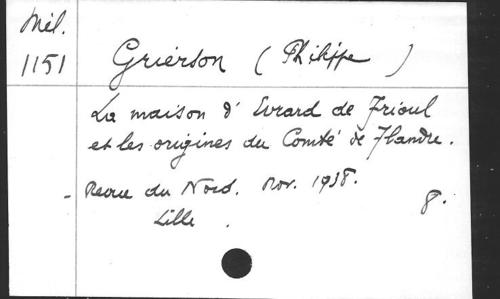 Mél.
1151
Grierson (Philippe)
La maison d'Evrard de Frioul
et les origines du Comté de Flandre.
- Revue du Nord. Nov. 1938.
Lille.
8.